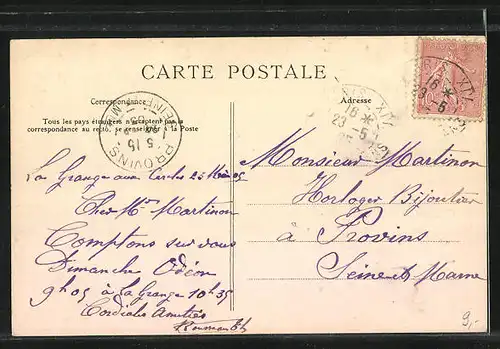 CARTE POSTALE
Correspondance
Adresse
Tous les pays étrangers n'acceptent pas la
correspondance au recto, se renseigner à la Poste
PROVINS
5 15
16 *
23 - 5
16 *
La Grange aux Cercles 25 05
Cher Mr Martinon
Comptons sur vous
Dimanche Odéon
9h05 à La Grange 10h35
Cordiales Amitiés
Monsieur Martinon
Horloger Bijoutier
à Provins
Seine et Marne
9,-